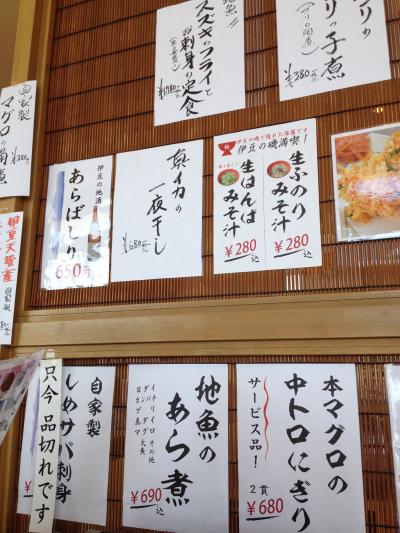 リの子煮
¥380
地魚!!
スズキのフライと
お刺身の定食
自家製
マグロの
角煮
伊豆の磯で獲れた海藻です
伊豆の磯満喫!
生ふのり
みそ汁
¥280込
生はんば
みそ汁
¥280込
真イカの
一夜干し
¥680
伊豆の地酒
あらばしり
650円
自家製
本マグロの
中トロにぎり
サービス品!
2貫
¥680
地魚の
あら煮
イチリイロ その他
¥690込
自家製
しめサバ刺身
只今 品切れです